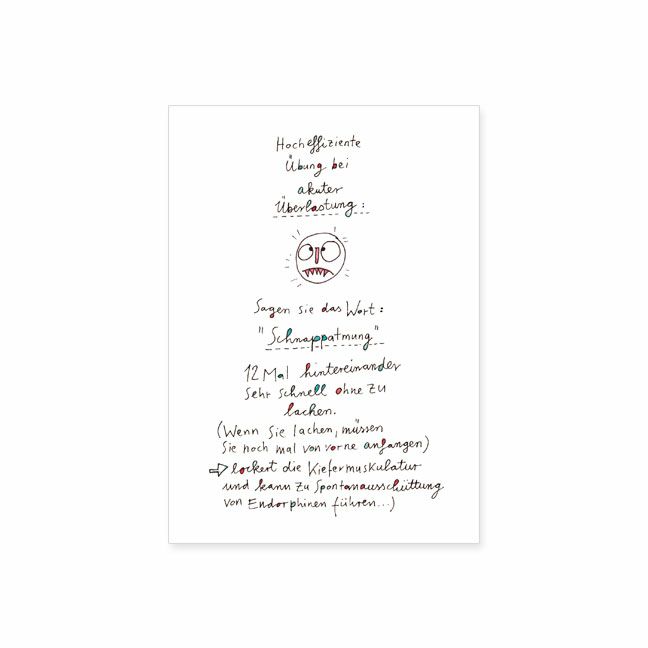 Hocheffiziente
Übung bei
akuter
Überlastung:
Sagen sie das Wort:
"Schnappatmung"
12 Mal hintereinander
sehr schnell ohne zu
lachen.
(Wenn Sie lachen, müssen
Sie noch mal von vorne anfangen)
⇨ lockert die Kiefermuskulatur
und kann zu Spontanausschüttung
von Endorphinen führen...)